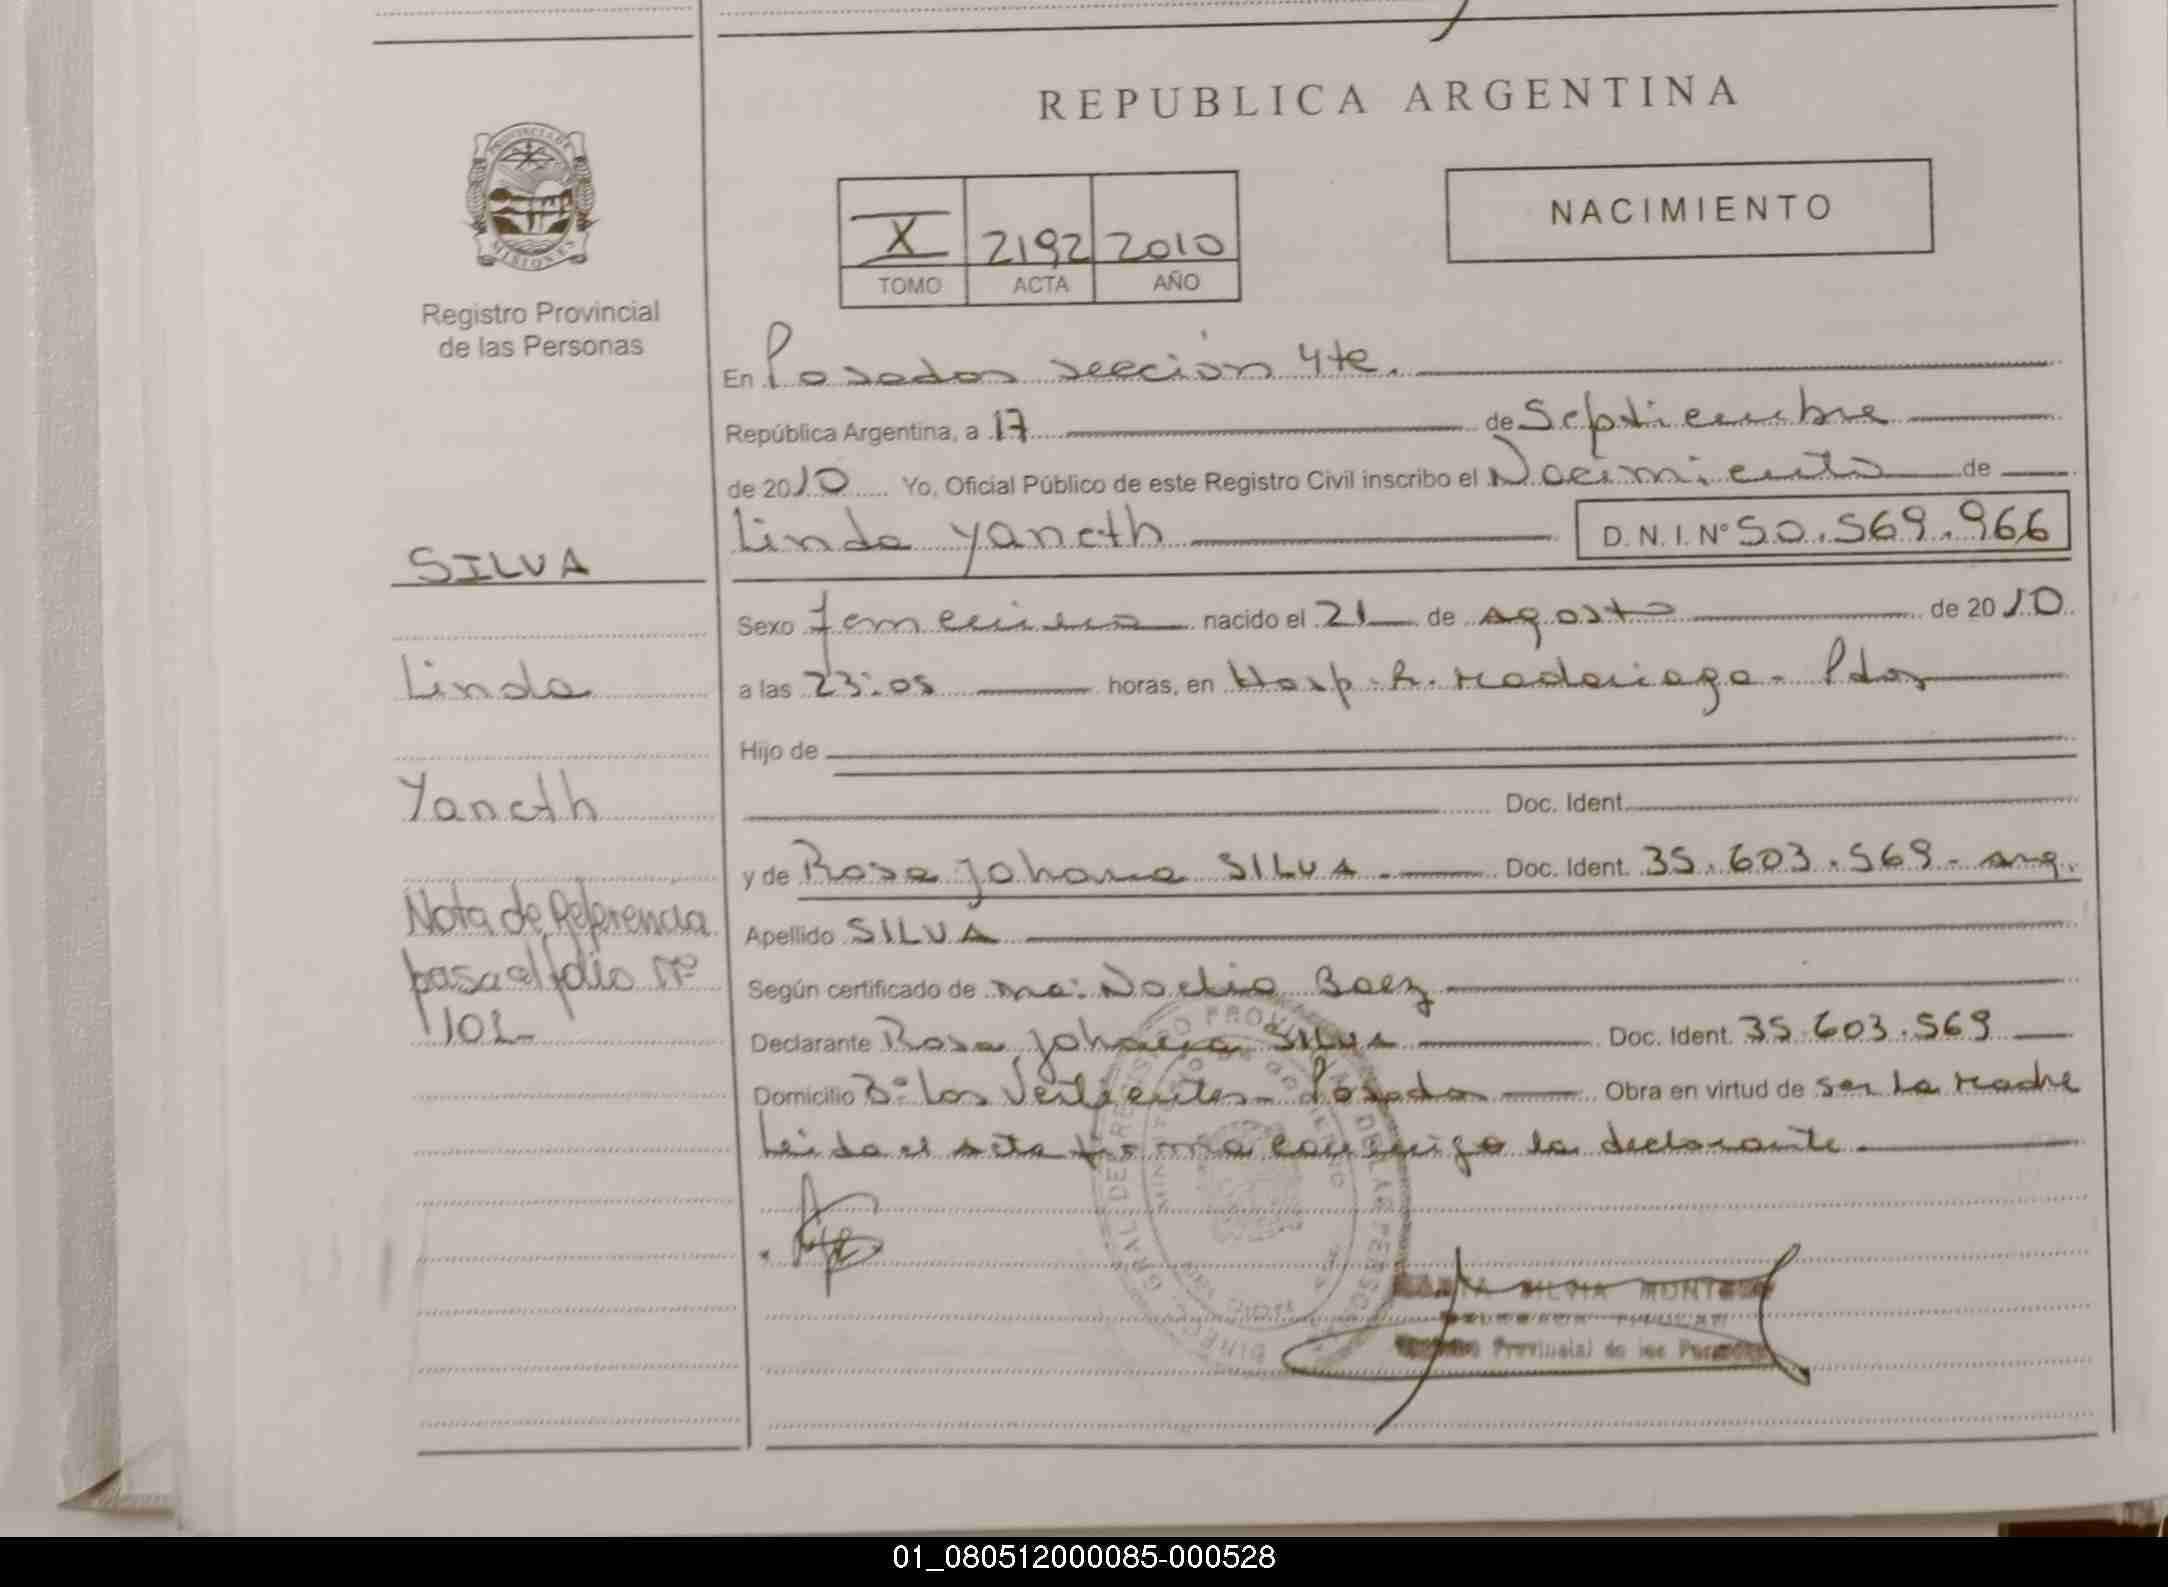 REPUBLICA ARGENTINA
PROVINCIA DE
MISIONES
Registro Provincial
de las Personas
X 2192 2010
TOMO ACTA AÑO
NACIMIENTO
En Posadas sección 4ta.
República Argentina, a 17 de Septiembre
de 2010 Yo, Oficial Público de este Registro Civil inscribo el Nacimiento de
Linda Yaneth D.N.I. Nº 50.569.966
SILVA
Linda
Yaneth
Nota de Referencia
pasa al folio Nº
101
Sexo femenino nacido el 21 de agosto de 2010
a las 23:05 horas, en Hosp. R. Madariaga - Pdas
Hijo de
Doc. Ident.
y de Rosa Johana SILVA Doc. Ident. 35.603.569 - arg.
Apellido SILVA
Según certificado de Ma. Noelia Baez
Declarante Rosa Johana SILVA Doc. Ident. 35.603.569
Domicilio Bº Los Vertientes - Posadas Obra en virtud de ser la madre
Leida el acta firma conmigo la declarante
SILVIA
Provincial de las
01_080512000085-000528